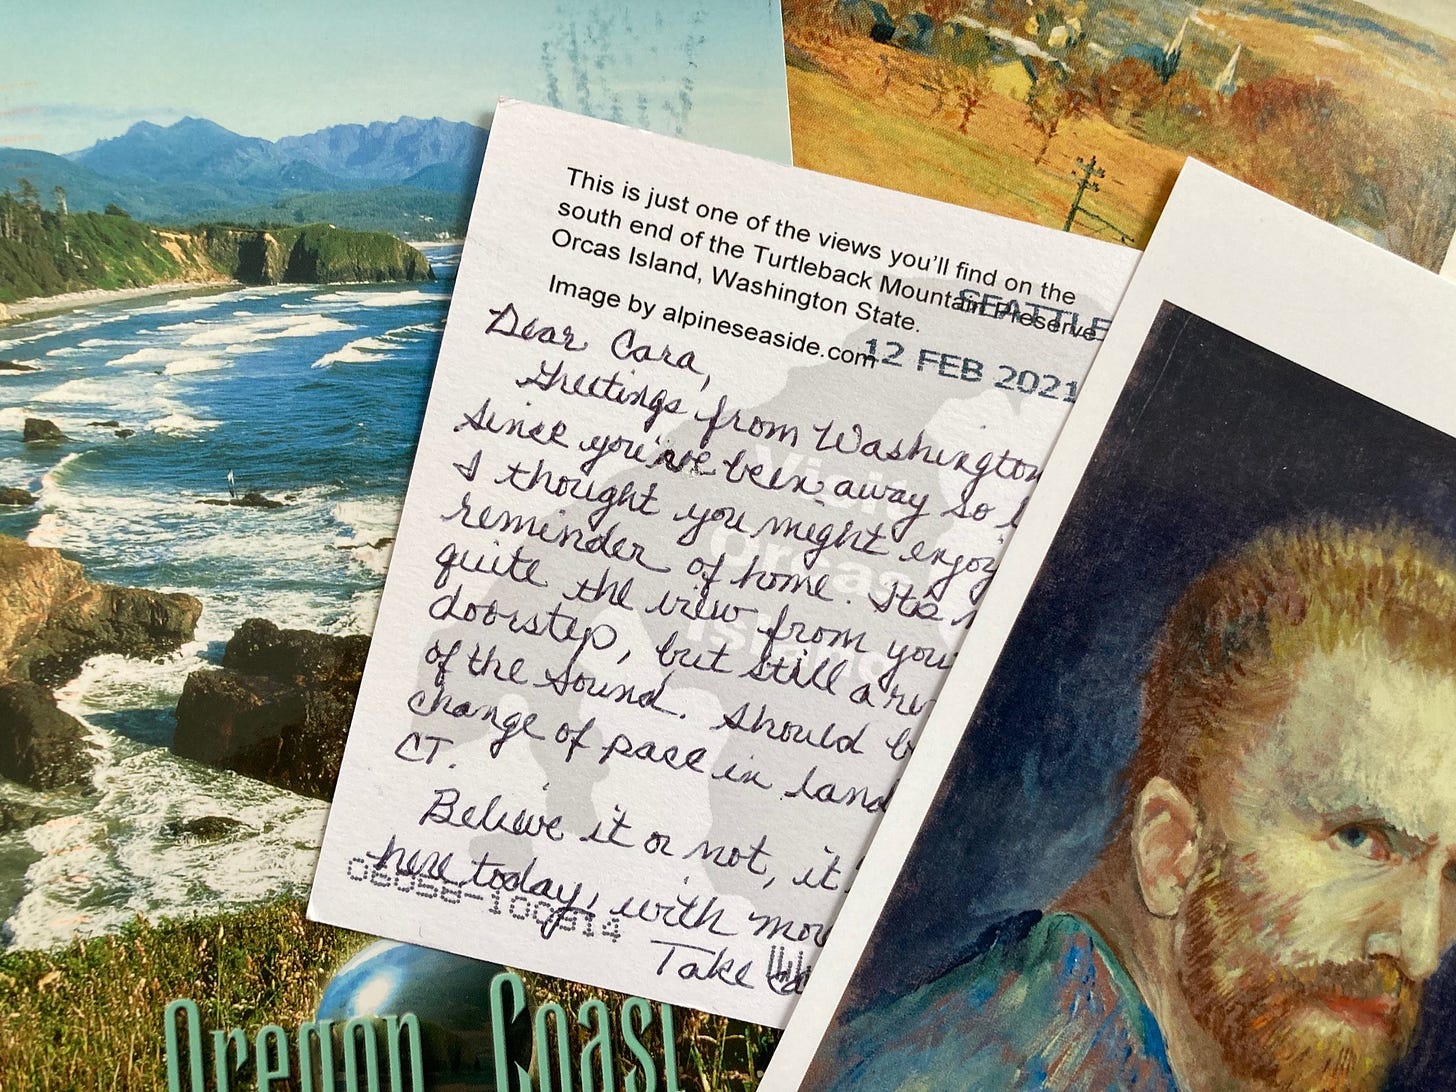 This is just one of the views you'll find on the
south end of the Turtleback Mountain Preserve
Orcas Island, Washington State.
Image by alpineseaside.com
SEATTLE
12 FEB 2021
Dear Cara,
Greetings from Washington
Since you've been away so
I thought you might enjoy
reminder of home. It's
quite the view from your
doorstep, but still a
of the Sound. Should
change of pace in land
CT.
Believe it or not, it
here today, with
Take
Visit
Orcas
Island
Oregon Coast